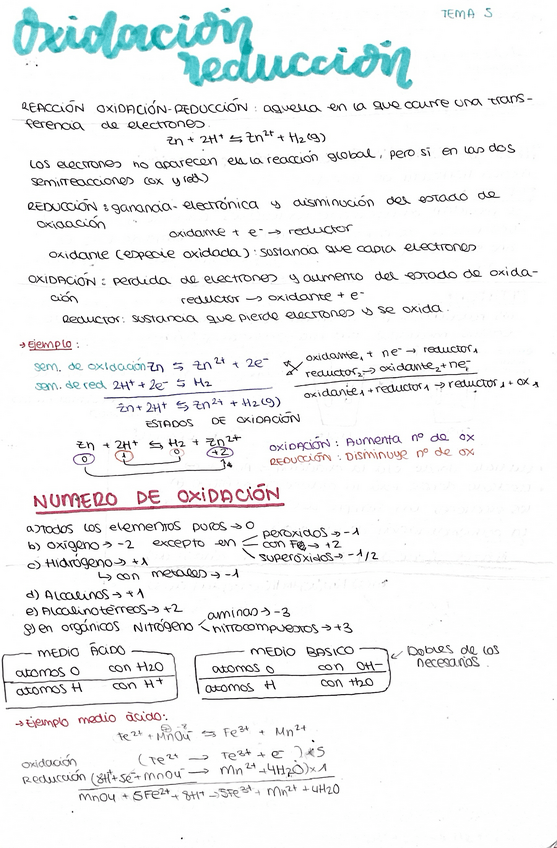 TEMA 5
Oxidación
reducción
REACCIÓN OXIDACIÓN-REDUCCIÓN: aquella en la que ocurre una trans-
ferencia de electrones.
Zn + 2H⁺ ⇆ Zn²⁺ + H₂(g)
Los electrones no aparecen en la reacción global, pero si en las dos
semirreacciones (ox y red)
REDUCCIÓN: ganancia electrónica y disminución del estado de
oxidación
oxidante + e⁻ → reductor
oxidante (especie oxidada): sustancia que capta electrones
OXIDACIÓN: perdida de electrones y aumento del estado de oxida-
ción
reductor → oxidante + e⁻
Reductor: sustancia que pierde electrones y se oxida.
→ Ejemplo:
sem. de oxidación Zn ⇆ Zn²⁺ + 2e⁻
sem. de red 2H⁺ + 2e⁻ ⇆ H₂
Zn + 2H⁺ ⇆ Zn²⁺ + H₂(g)
oxidante₁ + ne⁻ → reductor₁
reductor₂ → oxidante₂ + ne⁻
oxidante₁ + reductor₁ → reductor₁ + ox₁
ESTADOS DE OXIDACIÓN
Zn + 2H⁺ ⇆ H₂ + Zn²⁺
0 1 0 +2
OXIDACIÓN: Aumenta nº de ox
REDUCCIÓN: Disminuye nº de ox
NUMERO DE OXIDACIÓN
a) Todos los elementos puros → 0
b) oxígeno → -2 excepto en
peróxidos → -1
con F → +2
superóxidos → -1/2
c) Hidrógeno → +1
↳ con metales → -1
d) Alcalinos → +1
e) Alcalinotérreos → +2
g) en orgánicos Nitrógeno
aminas → -3
nitrocompuestos → +3
MEDIO ÁCIDO
atomos O con H2O
atomos H con H⁺
MEDIO BASICO
atomos O con OH⁻
atomos H con H2O
Dobles de los
necesarios.
→ Ejemplo medio ácido:
Fe²⁺ + MnO₄⁻ ⇆ Fe³⁺ + Mn²⁺
oxidación (Fe²⁺ → Fe³⁺ + e⁻) x5
Reducción (8H⁺ + 5e⁻ + MnO₄⁻ → Mn²⁺ + 4H₂O) x1
MnO₄ + 5Fe²⁺ + 8H⁺ → 5Fe³⁺ + Mn²⁺ + 4H2O